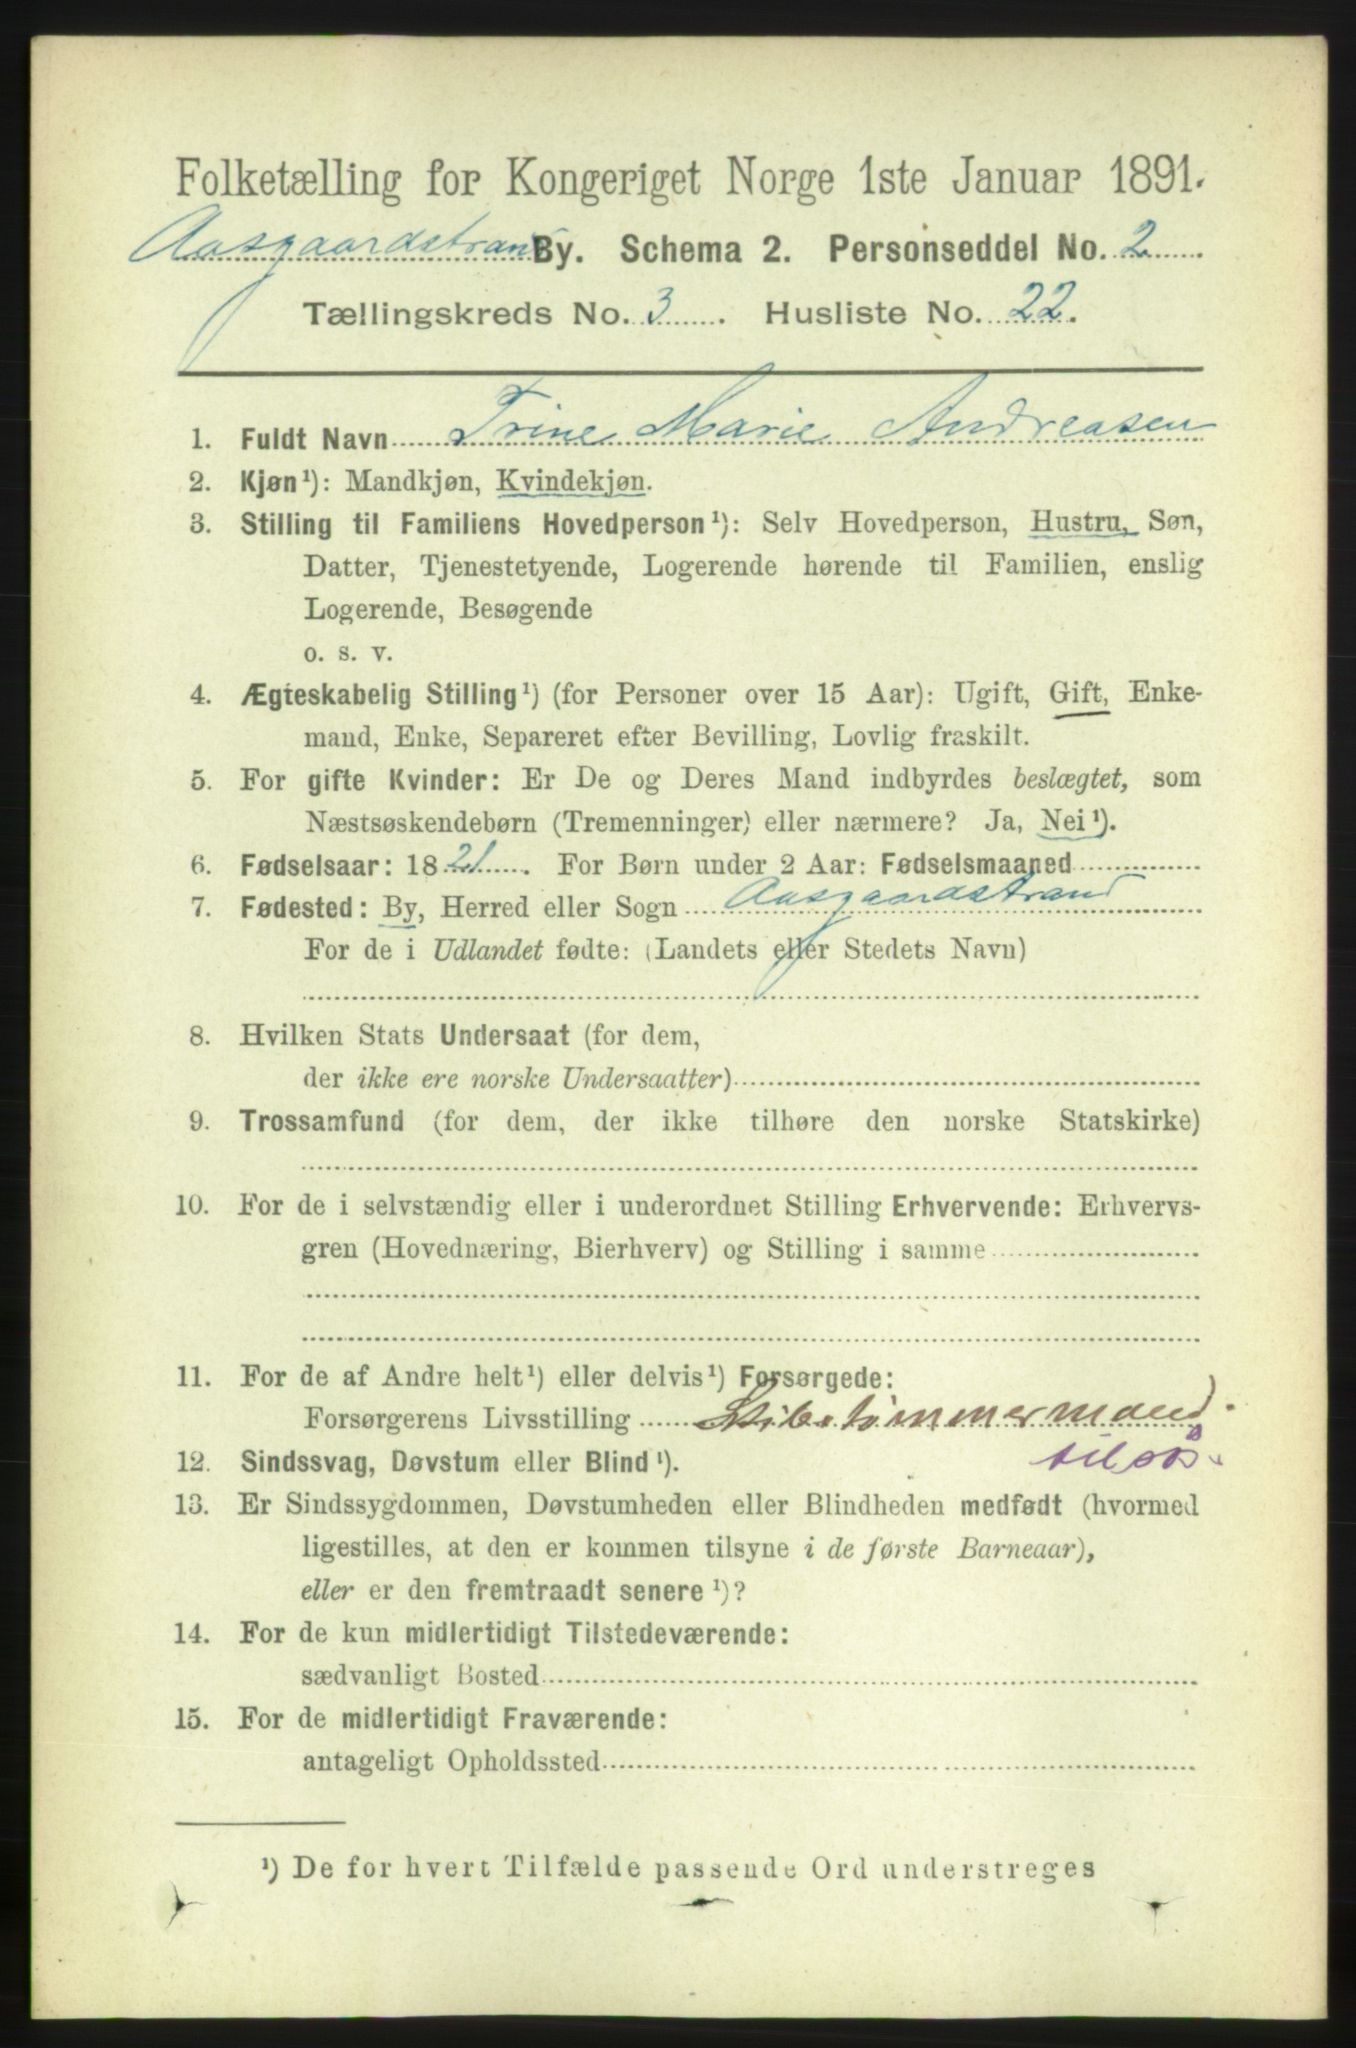 Folketælling for Kongeriget Norge 1ste Januar 1891.
Aasgaardstrand By. Schema 2. Personseddel No. 2
Tællingskreds No. 3. Husliste No. 22.
1. Fuldt Navn Trine Marie Andreasen
2. Kjøn¹): Mandkjøn, Kvindekjøn.
3. Stilling til Familiens Hovedperson¹): Selv Hovedperson, Hustru, Søn,
Datter, Tjenestetyende, Logerende hørende til Familien, enslig
Logerende, Besøgende
o. s. v.
4. Ægteskabelig Stilling¹) (for Personer over 15 Aar): Ugift, Gift, Enke-
mand, Enke, Separeret efter Bevilling, Lovlig fraskilt.
5. For gifte Kvinder: Er De og Deres Mand indbyrdes beslægtet, som
Næstsøskendebørn (Tremenninger) eller nærmere? Ja, Nei¹).
6. Fødselsaar: 1821. For Børn under 2 Aar: Fødselsmaaned
7. Fødested: By, Herred eller Sogn Aasgaardstrand
For de i Udlandet fødte: (Landets eller Stedets Navn)
8. Hvilken Stats Undersaat (for dem,
der ikke ere norske Undersaatter)
9. Trossamfund (for dem, der ikke tilhøre den norske Statskirke)
10. For de i selvstændig eller i underordnet Stilling Erhvervende: Erhvervs-
gren (Hovednæring, Bierhverv) og Stilling i samme
11. For de af Andre helt¹) eller delvis¹) Forsørgede:
Forsørgerens Livsstilling Skibstømmermand.
tilsøs.
12. Sindssvag, Døvstum eller Blind¹).
13. Er Sindssygdommen, Døvstumheden eller Blindheden medfødt (hvormed
ligestilles, at den er kommen tilsyne i de første Barneaar),
eller er den fremtraadt senere¹)?
14. For de kun midlertidigt Tilstedeværende:
sædvanligt Bosted
15. For de midlertidigt Fraværende:
antageligt Opholdssted
¹) De for hvert Tilfælde passende Ord understreges